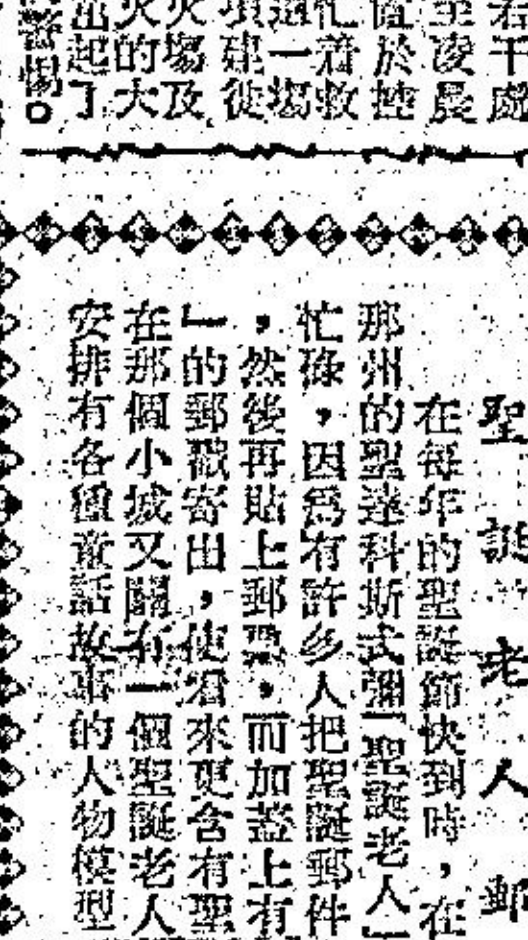 若干處
至凌晨
置於控
忙着救
這一場
項建徙
火場及
火的大
出起了
警惕。
聖誕老人郵
在每年的聖誕節快到時，在
那州的聖達科斯式彌「聖誕老人」
忙碌，因爲有許多人把聖誕郵件
，然後再貼上郵票，而加蓋上有
」的郵戳寄出，使看來更含有聖
在那個小城又闢有一個聖誕老人
安排有各種童話故事的人物模型